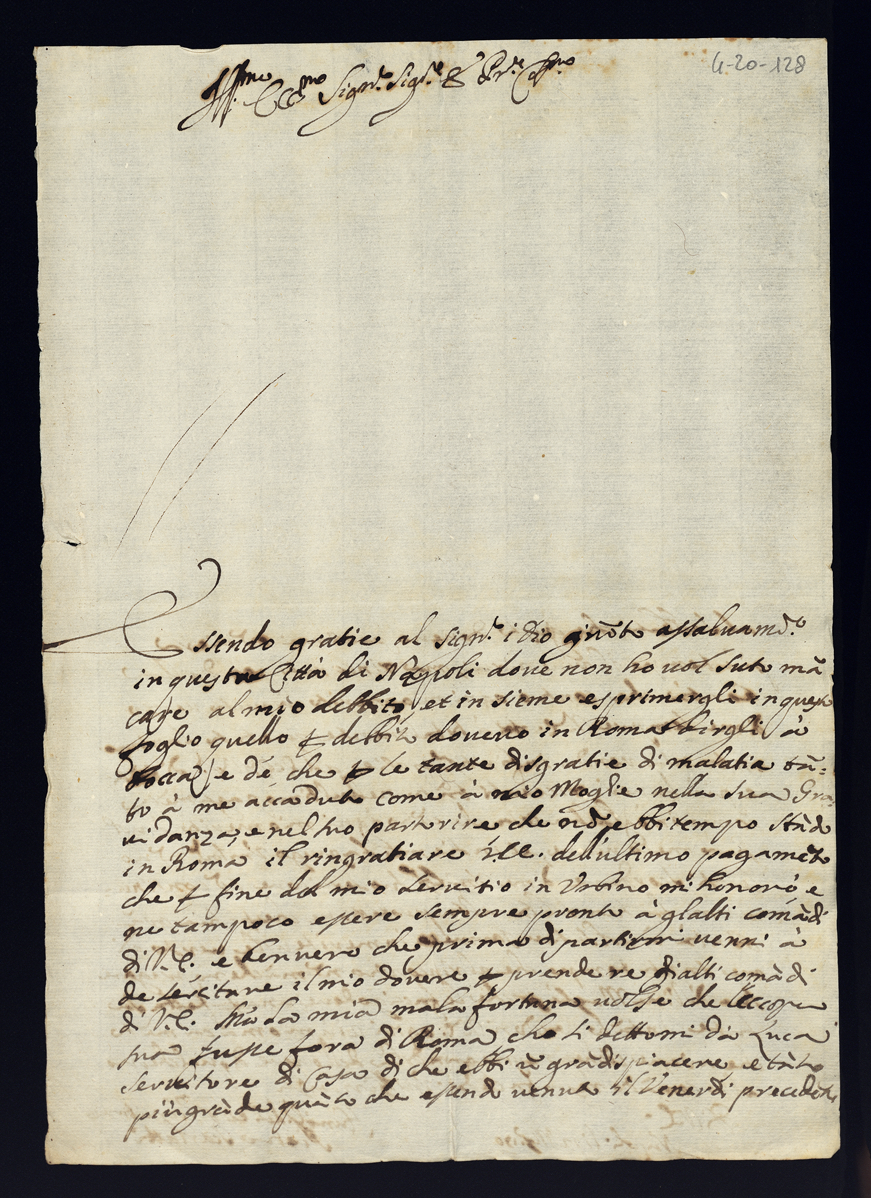 4-20-128
Ill.mo Ecc.mo Sign.r Sig.re &
Essendo gratie al Sign.r i dio giũto assaluam.to
in questa Città di Napoli dove non ho uolsuto mã
care al mio debbito, et in sieme esprimergli in quest
foglio quello dovevo in Roma dirgli à
bocca) e de che le tante disgratie di malatia tã=
to à me accadute come à mio Moglie nella sua Gra
uidanza, e nel suo partorire che nõ ebbi tempo stãdo
in Roma il ringratiare V.E. dell'ultimo pagamẽto
che fine del mio seruitio in Vrbino mi honorò, e
ne tampoco essere sempre pronto à glalti comãdi
di V.E. e benvero che prima di partirmi venni à
de sercitare il mio dovere prendere di alti comãdi
di V.E. Mà la mia mala fortuna uolse che l'ecce
sua fusse fora di Roma che li dettomi da Luca
seruitore di Casa di che ebbi ũ grã dispiacere e tãto
più grãde quãto che essendo venuto il Venerdi precedẽte